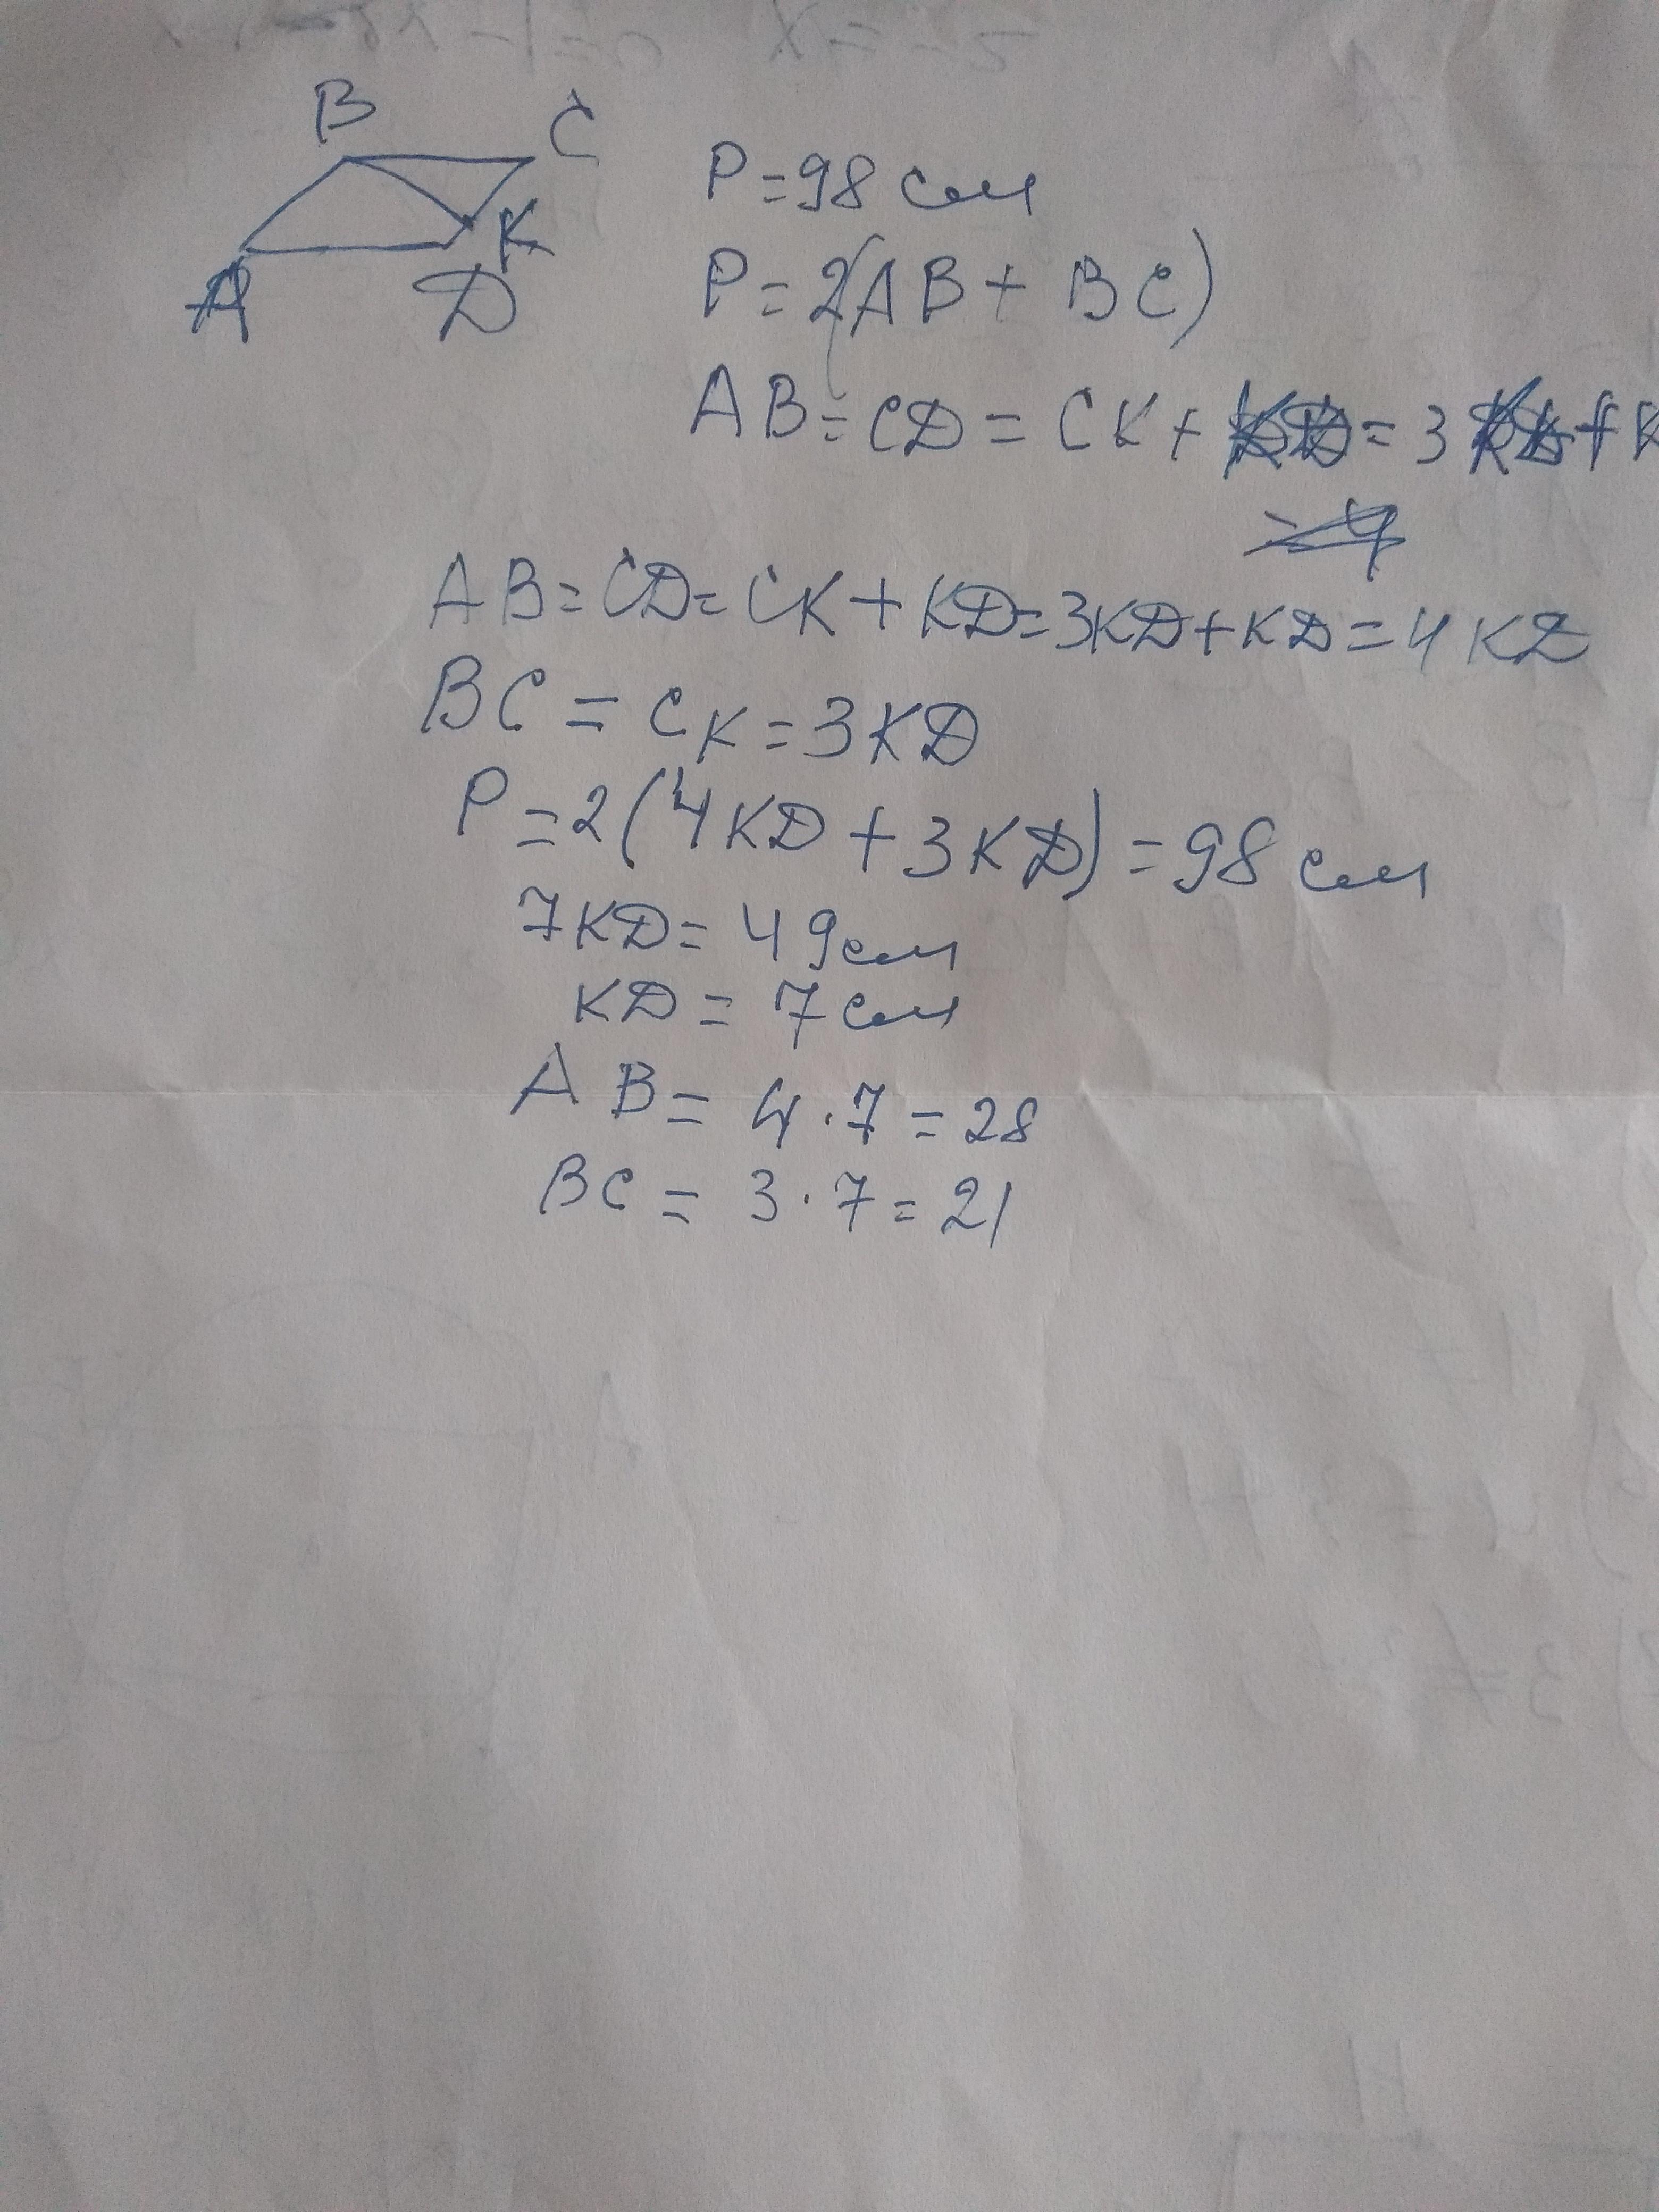 B C
A D K
P=98 см
P=2(AB+BC)
AB=CD=CK+KD=3KD+K
=4
AB=CD=CK+KD=3KD+KD=4KD
BC=CK=3KD
P=2(4KD+3KD)=98 см
7KD=49см
KD=7см
AB=4·7=28
BC=3·7=21